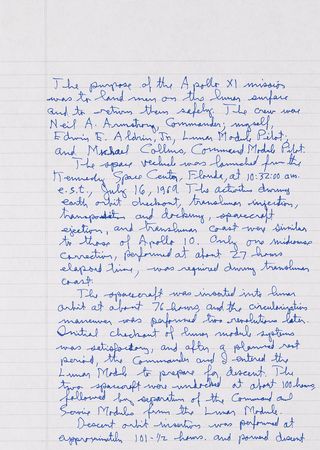 The purpose of the Apollo XI mission
was to land men on the lunar surface
and to return them safely. The crew were
Neil A. Armstrong, Commander; myself,
Edwin E. Aldrin, Jr., Lunar Module Pilot;
and Michael Collins, Command Module Pilot.
The space vehicle was launched from the
Kennedy Space Center, Florida, at 10:32:00 am.
e.s.t., July 16, 1969. The activities during
earth orbit checkout, translunar injection,
transposition and docking, spacecraft
ejection, and translunar coast were similar
to those of Apollo 10. Only one midcourse
correction, performed at about 27 hours
elapsed time, was required during translunar
coast.
The spacecraft was inserted into lunar
orbit at about 76 hours, and the circularization
maneuver was performed two revolutions later.
Initial checkout of lunar module systems
was satisfactory, and after a planned rest
period, the Commander and I entered the
Lunar Module to prepare for descent. The
two spacecraft were undocked at about 100 hours,
followed by separation of the Command and
Service Modules from the Lunar Module.
Descent orbit insertion was performed at
approximately 101-1/2 hours, and powered descent